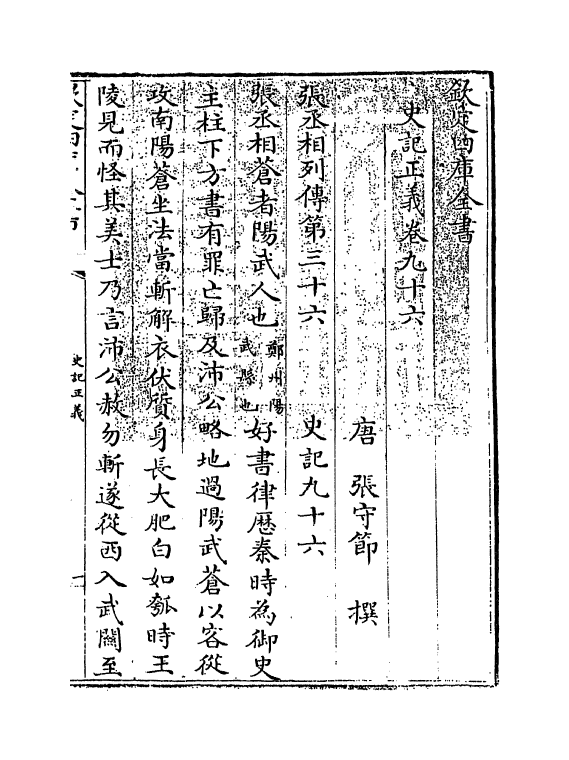 欽定四庫全書
史記正義卷九十六
唐 張守節 撰
張丞相列傳第三十六 史記九十六
張丞相蒼者陽武人也鄭州陽武縣也好書律歷秦時為御史
主柱下方書有罪亡歸及沛公略地過陽武蒼以客從
攻南陽蒼坐法當斬解衣伏質身長大肥白如瓠時王
陵見而怪其美士乃言沛公赦勿斬遂從西入武關至
欽定四庫全書
史記正義
一